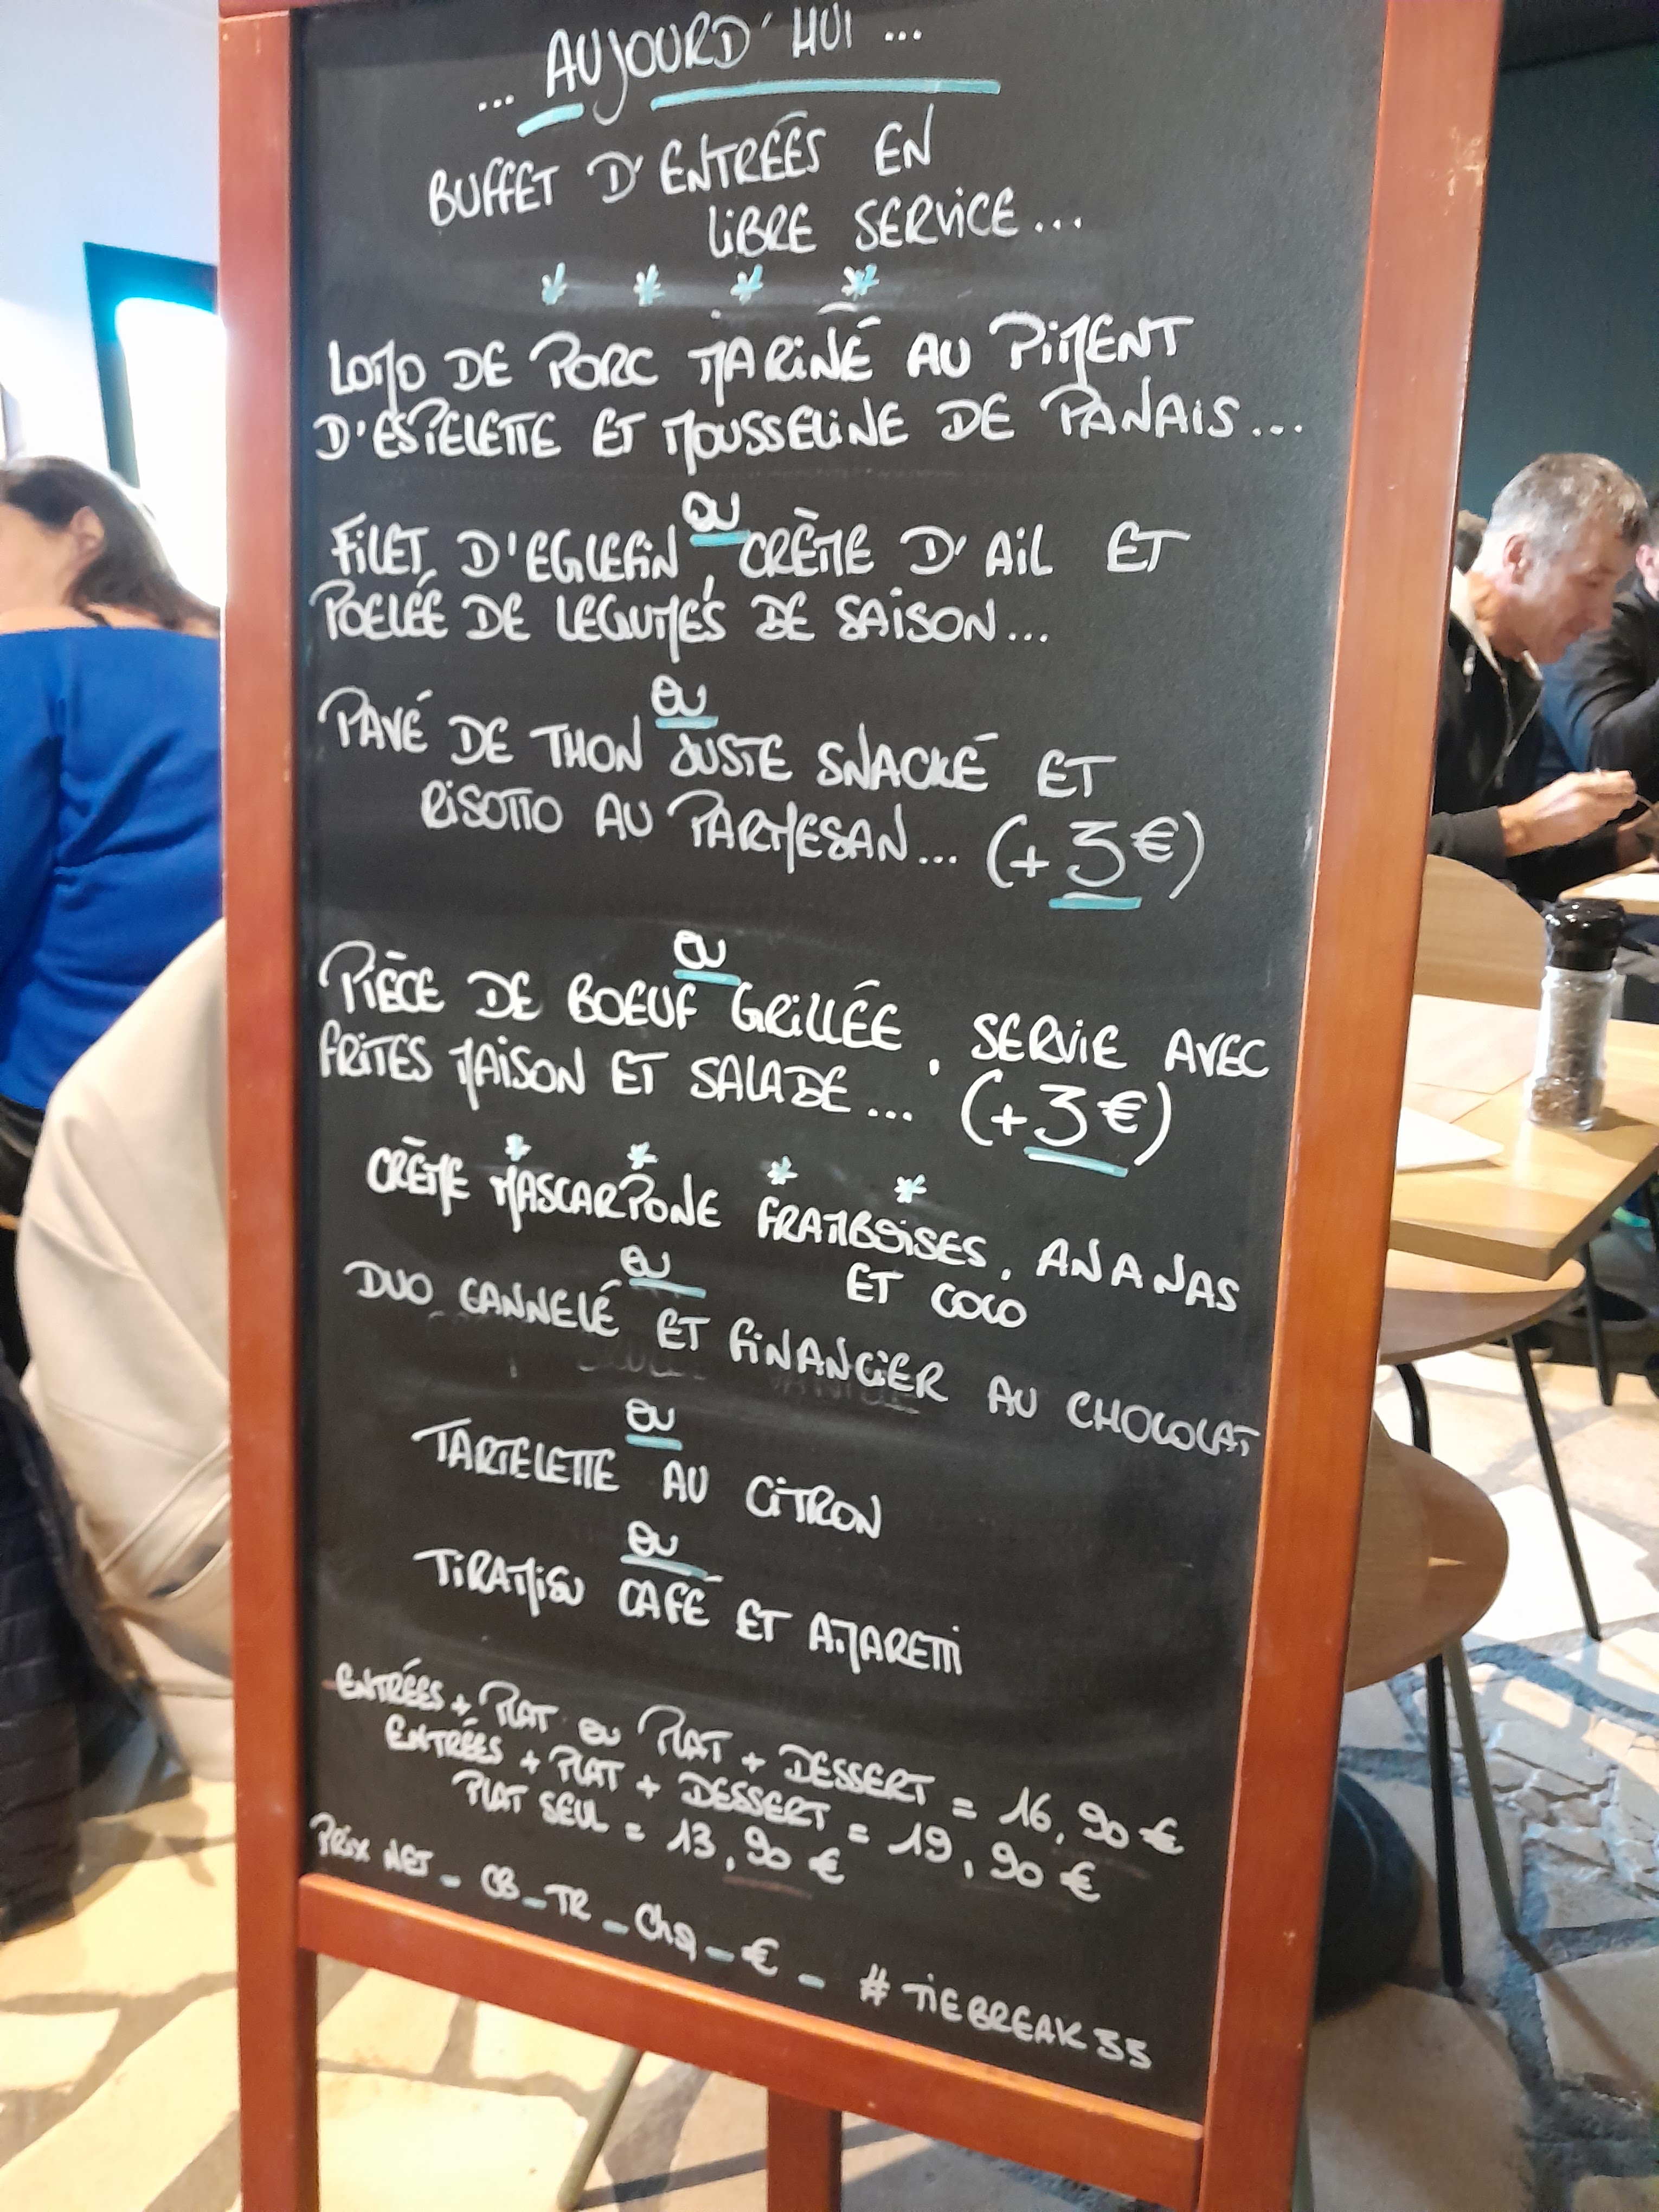 ... AUJOURD'HUI ...
BUFFET D'ENTRÉES EN
LIBRE SERVICE...
* * * *
LOMO DE PORC MARINÉ AU PIMENT
D'ESPELETTE ET MOUSSELINE DE PANAIS...
OU
FILET D'EGLEFIN, CRÈME D'AIL ET
POELÉE DE LEGUMES DE SAISON...
OU
PAVÉ DE THON JUSTE SNACKÉ ET
RISOTTO AU PARMESAN... (+3€)
OU
PIÈCE DE BOEUF GRILLÉE, SERVIE AVEC
FRITES MAISON ET SALADE... (+3€)
* * * *
CRÈME MASCARPONE FRAMBOISES, ANANAS
ET COCO
OU
DUO CANNELÉ ET FINANCIER AU CHOCOLAT
OU
TARTELETTE AU CITRON
OU
TIRAMISU CAFÉ ET AMARETTI
ENTRÉES + PLAT OU PLAT + DESSERT = 16,90 €
ENTRÉES + PLAT + DESSERT = 19,90 €
PLAT SEUL = 13,90 €
PRIX NET _ CB _ TR _ Chq _ € _ # TIEBREAK33